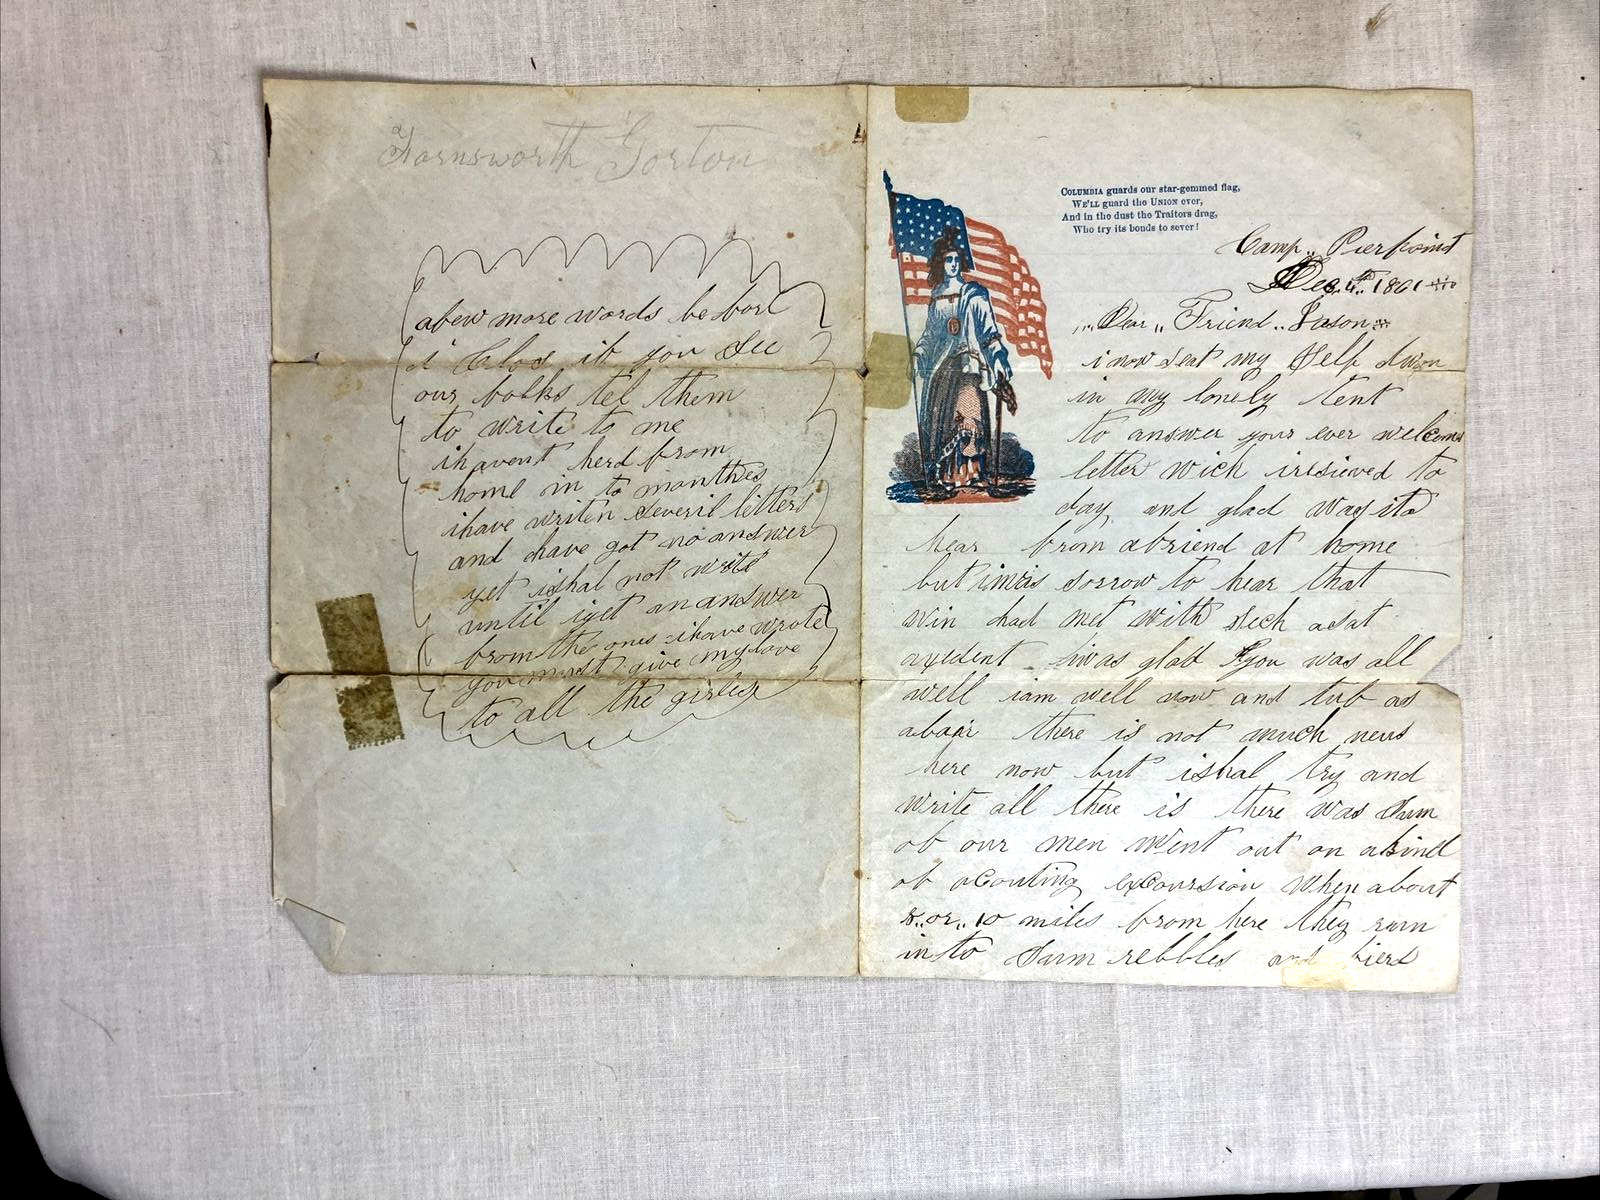 Farnsworth Gorton
afew more words be fore
i Clos if you See
our folks tel them
to write to me
ihavent herd from
home in to monthes
ihave writen Severil letters
and have got no answer
yet ishal not write
until iget an answer
from the ones ihave wrote
you must give my love
to all the girles
COLUMBIA guards our star-gemmed flag,
WE'LL guard the UNION ever,
And in the dust the Traitors drag,
Who try its bonds to sever!
Camp Pierpoint
Dec 1861
Dear Friend Jason
i now Seat my Self down
in my lonely tent
to answer your ever welcome
letter wich ireseved to
day and glad was i to
hear from afriend at home
but sorrow to hear that
win had met with Sech asat
axedent iwas glad you was all
well iam well now and tuf as
abair there is not much news
here now but ishal try and
write all there is there was Sum
of our men went out on akind
of aCouting exCoursion when about
8 or 10 miles from here they rum
in to Sum rebbles and fierd